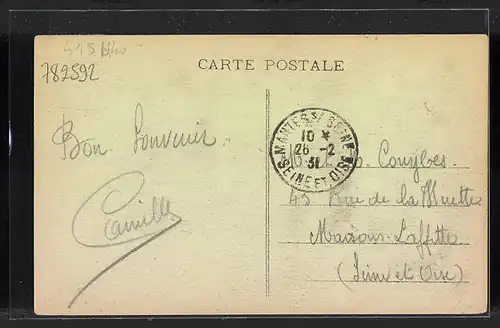 782592
CARTE POSTALE
Bon Souvenir
Camille
MANTES S/ SEINE
10 *
26 - 2
31
SEINE ET OISE
45 Rue de la Muette
Maisons-Laffitte
(Seine et Oise)